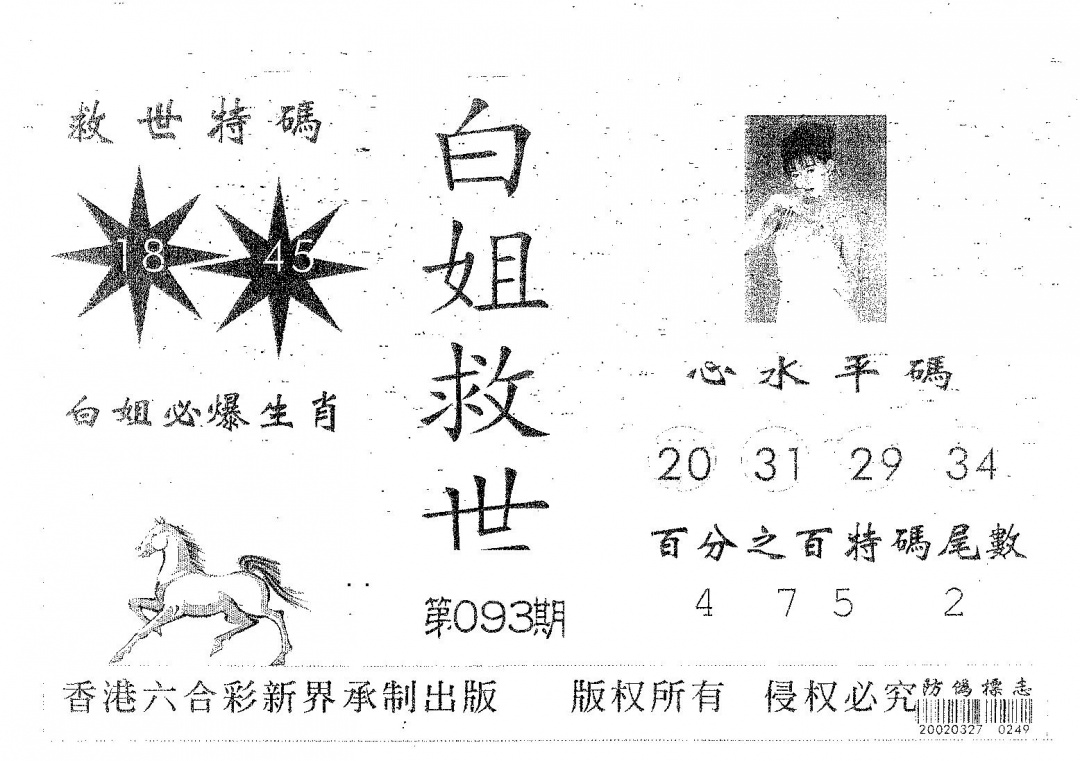 救世特碼
18 45
白姐必爆生肖
白姐救世
第093期
心水平碼
20 31 29 34
百分之百特碼尾數
4 7 5 2
香港六合彩新界承制出版 版权所有 侵权必究
防偽標志
20020327 0249